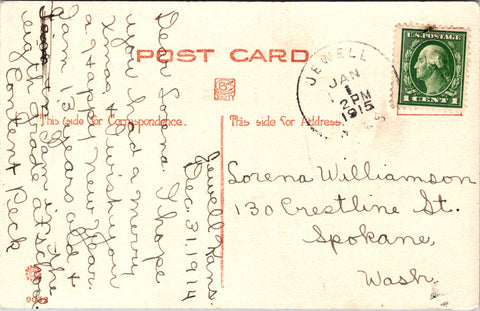 POST CARD
This side for Correspondence.
This side for Address.
JEWELL
JAN
1
2 PM
1915
U.S. POSTAGE
1 CENT 1
Sorena Williamson
130 Crestline St.
Spokane,
Wash.
Jewell Kans.
Dec. 31, 1914
Dear Sorena. I hope
you had a merry
Xmas & I wish you
a Happy New Year.
I am 13 years old &
I am in the
eighth grade at school
Content Peck